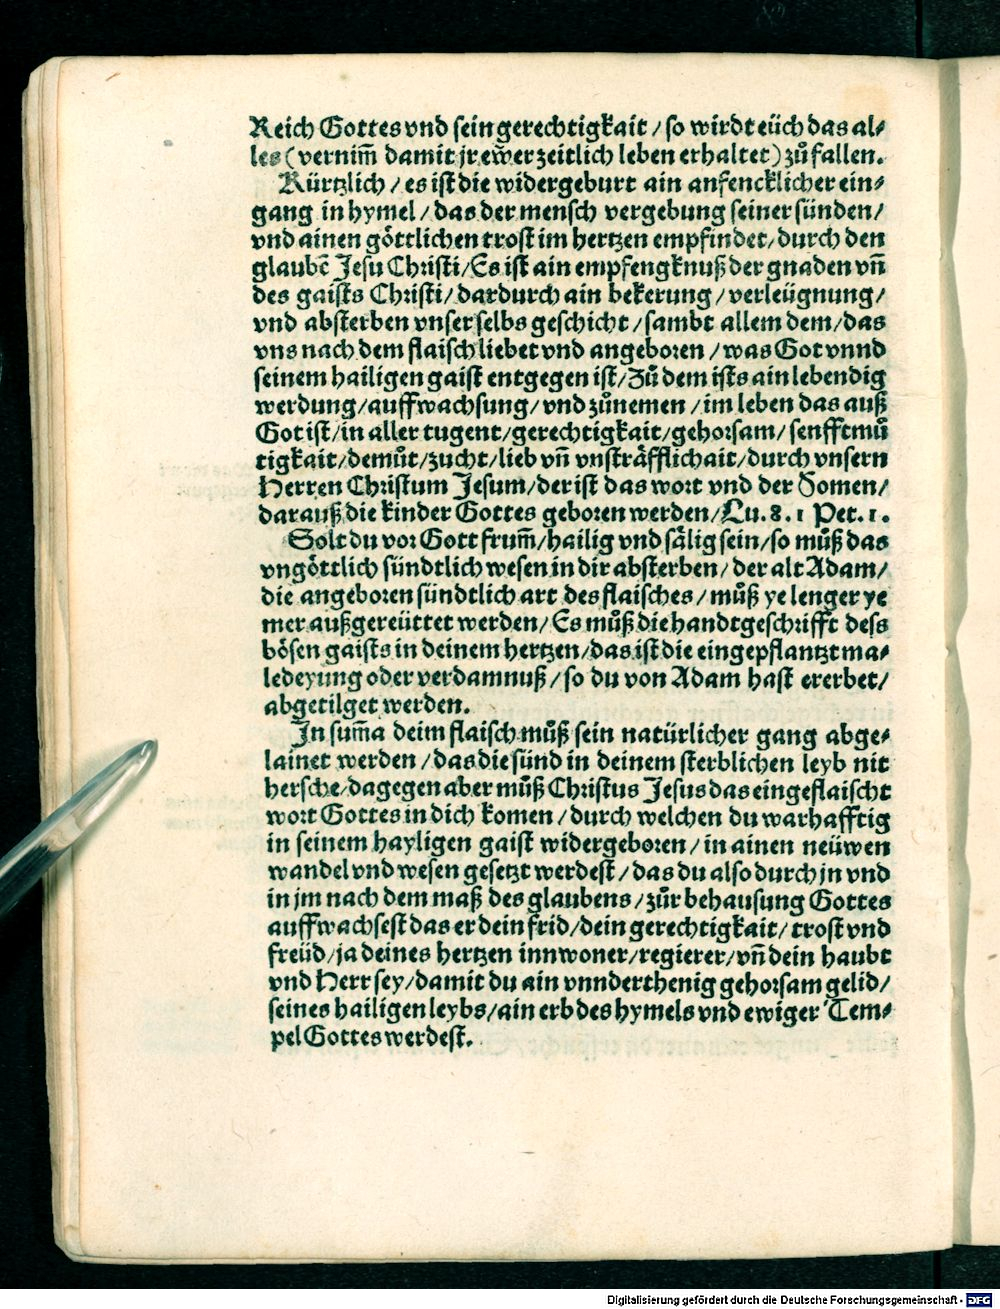 Reich Gottes vnd sein gerechtigkait / so wirdt eüch das al⸗
les (vernim̃ damit jr ew̃er zeitlich leben erhaltet) zůfallen.
Kürtzlich / es ist die widergeburt ain anfencklicher ein⸗
gang in hymel / das der mensch vergebung seiner sünden /
vnd ainen göttlichen trost im hertzen empfindet / durch den
glaubē Jesu Christi / Es ist ain empfengknuß der gnaden vñ
des gaists Christi / dardurch ain bekerung / verleügnung /
vnd absterben vnser selbs geschicht / sambt allem dem / das
vns nach dem flaisch liebet vnd angeboren / was Got vnnd
seinem hailigen gaist entgegen ist / Zů dem ists ain lebendig
werdung / auffwachsung / vnd zůnemen / im leben das auß
Got ist / in aller tugent / gerechtigkait / gehorsam / senfftmů
tigkait / demůt / zucht / lieb vñ vnsträfflichait / durch vnsern
Herren Christum Jesum / der ist das wort vnd der Somen /
darauß die kinder Gottes geboren werden / Lu. 8. 1 Pet. 1.
Solt du vor Gott frum̃ / hailig vnd sälig sein / so můß das
vngöttlich sündtlich wesen in dir absterben / der alt Adam /
die angeboren sündtlich art des flaisches / můß ye lenger ye
mer außgereüttet werden / Es můß die handtgeschrifft dess
bösen gaists in deinem hertzen / das ist die eingepflantzt ma⸗
ledeyung oder verdamnuß / so du von Adam hast ererbet /
abgetilget werden.
In sum̃a deim flaisch můß sein natürlicher gang abge⸗
lainet werden / das die sünd in deinem sterblichen leyb nit
hersche / dagegen aber můß Christus Jesus das eingeflaischt
wort Gottes in dich komen / durch welchen du warhafftig
in seinem hayligen gaist widergeboren / in ainen neüwen
wandel vnd wesen gesetzt werdest / das du also durch jn vnd
in jm nach dem maß des glaubens / zůr behausung Gottes
auffwachsest das er dein frid / dein gerechtigkait / trost vnd
freüd / ja deines hertzen innwoner / regierer / vñ dein haubt
vnd Herr sey / damit du ain vnnderthenig gehorsam gelid /
seines hailigen leybs / ain erb des hymels vnd ewiger Tem⸗
pel Gottes werdest.
Digitalisierung gefördert durch die Deutsche Forschungsgemeinschaft - DFG